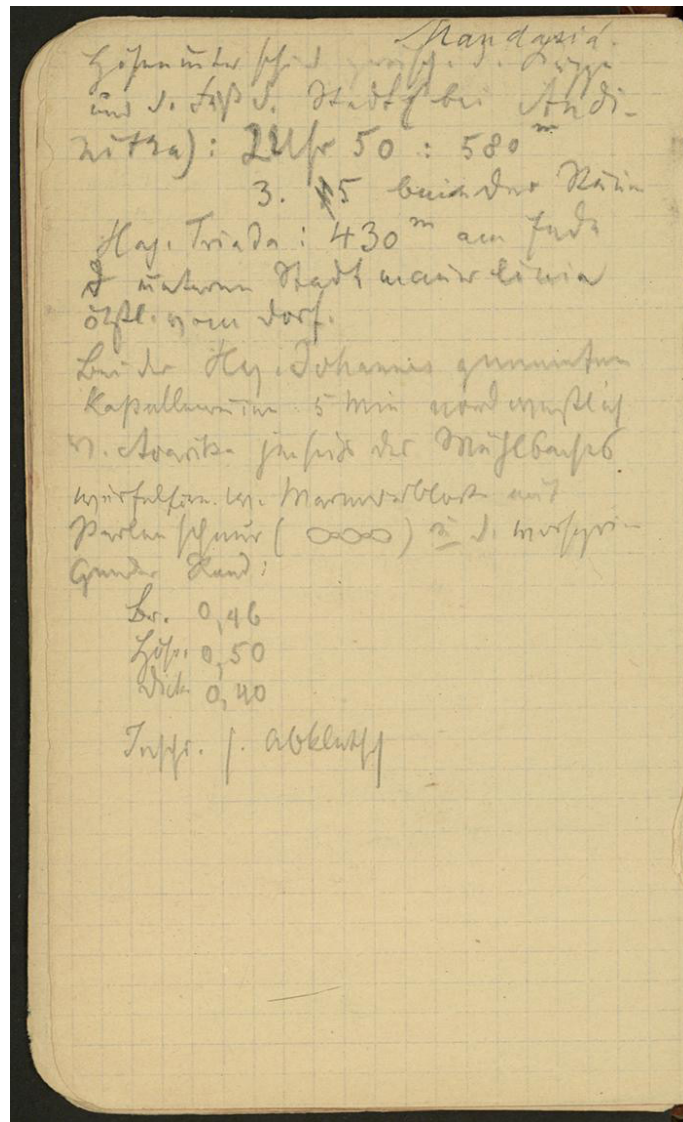 Mandasiá.
Höhenunterschied zwisch. d. Kuppe
und d. Fuß d. Stadt (bei Andi-
nitza): 2 Uhr 50 : 580 m
3. 15 bei der Ruin
Hag. Triada : 430 m am Ende
d unteren Stadtmauerlinie
östl. vom Dorf.
Bei der Hag. Johannis genannten
Kapellenruine 5 Min nordwestlich
v. Avarit jenseits des Mühlbaches
würfelförm. w. Marmorblock mit
Perlenschnur ( ) a. d. vorsprin-
genden Rand:
Br. 0,46
Höhe 0,50
Dick. 0,40
Inschr. s. Abklatsch